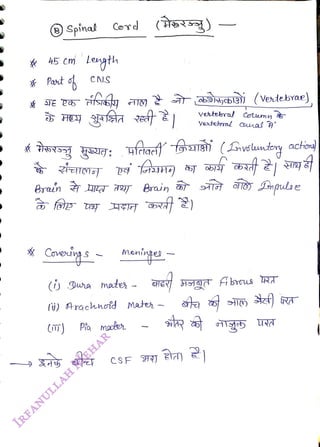 Ⓑ Spinal Cord (मेरूरज्जु) —
* 45 cm Length
* Part of CNS
* यह एक तंत्रिकीय नाल है जो कशेरूकाओं (Vertebrae)
के मध्य सुरक्षित रहती है। vertebral Column के
Vertebral Canal में
* मेरूरज्जु मुख्यतः प्रतिवर्ती क्रियाओं (Involuntary action)
के संचालन एवं नियमन का कार्य करती है। साथ ही
Brain से प्राप्त तथा Brain को जाने वाले Impulse
के लिए पथ प्रदान करती है।
* Coverings - Meninges -
(i) Dura mater - बाहरी मजबूत Fibrous परत
(ii) Arachnoid Mater - बीच की जाल जैसी परत
(iii) Pia mater - भीतर की नाजुक परत
→ इनके बीच CSF भरा होता है।
IRFANULLAH MEHAR